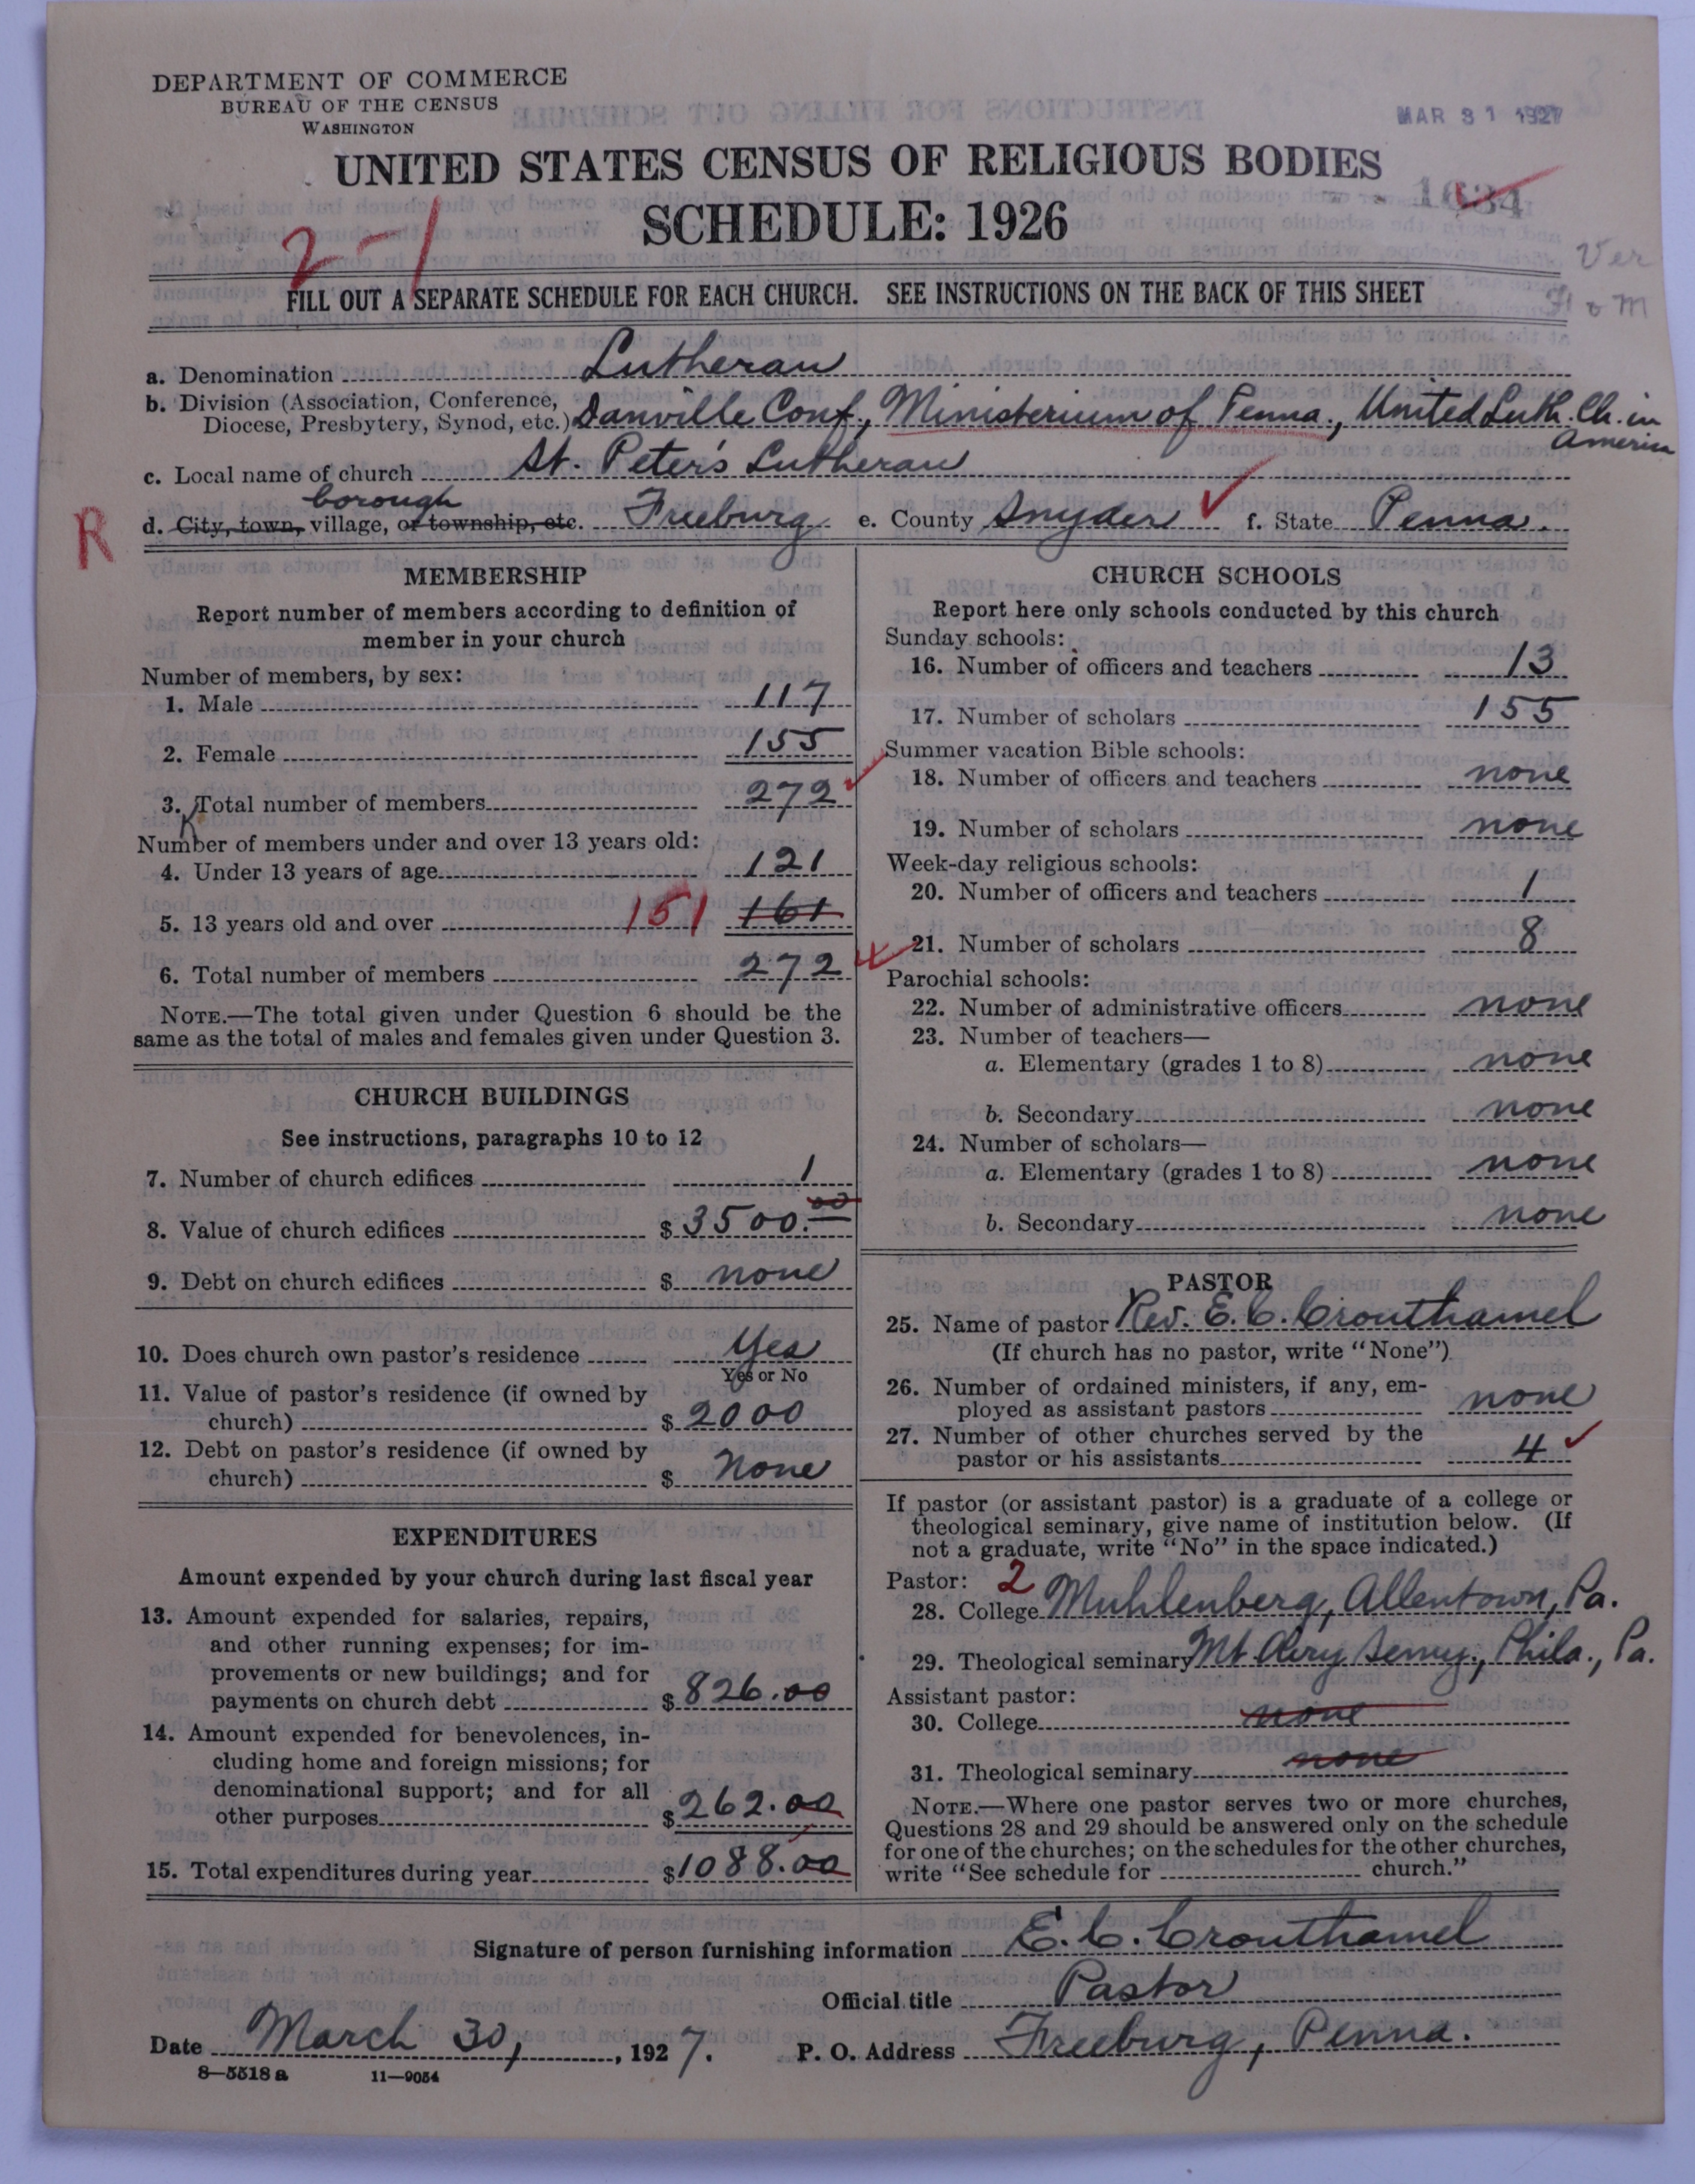 DEPARTMENT OF COMMERCE
BUREAU OF THE CENSUS
WASHINGTON
MAR 31 1927
UNITED STATES CENSUS OF RELIGIOUS BODIES
SCHEDULE: 1926
2-1
Ver
FILL OUT A SEPARATE SCHEDULE FOR EACH CHURCH. SEE INSTRUCTIONS ON THE BACK OF THIS SHEET
a. Denomination Lutheran
b. Division (Association, Conference, Diocese, Presbytery, Synod, etc.) Danville Conf., Ministerium of Penna., United Luth. Ch. in America
c. Local name of church St. Peter's Lutheran
borough
R
d. City, town, village, or township, etc. Freeburg e. County Snyder f. State Penna.
MEMBERSHIP
Report number of members according to definition of
member in your church
Number of members, by sex:
1. Male 117
2. Female 155
3. Total number of members 272
Number of members under and over 13 years old:
4. Under 13 years of age 121
5. 13 years old and over 151 161
6. Total number of members 272
NOTE.—The total given under Question 6 should be the
same as the total of males and females given under Question 3.
CHURCH BUILDINGS
See instructions, paragraphs 10 to 12
7. Number of church edifices 1
8. Value of church edifices $3500.00
9. Debt on church edifices $ none
10. Does church own pastor's residence Yes
Yes or No
11. Value of pastor's residence (if owned by
church) $2000
12. Debt on pastor's residence (if owned by
church) $ None
EXPENDITURES
Amount expended by your church during last fiscal year
13. Amount expended for salaries, repairs,
and other running expenses; for im-
provements or new buildings; and for
payments on church debt $826.00
14. Amount expended for benevolences, in-
cluding home and foreign missions; for
denominational support; and for all
other purposes $262.00
15. Total expenditures during year $1088.00
CHURCH SCHOOLS
Report here only schools conducted by this church
Sunday schools:
16. Number of officers and teachers 13
17. Number of scholars 155
Summer vacation Bible schools:
18. Number of officers and teachers none
19. Number of scholars none
Week-day religious schools:
20. Number of officers and teachers 1
21. Number of scholars 8
Parochial schools:
22. Number of administrative officers none
23. Number of teachers—
a. Elementary (grades 1 to 8) none
b. Secondary none
24. Number of scholars—
a. Elementary (grades 1 to 8) none
b. Secondary none
PASTOR
25. Name of pastor Rev. E. C. Crouthamel
(If church has no pastor, write "None")
26. Number of ordained ministers, if any, em-
ployed as assistant pastors none
27. Number of other churches served by the
pastor or his assistants 4
If pastor (or assistant pastor) is a graduate of a college or
theological seminary, give name of institution below. (If
not a graduate, write "No" in the space indicated.)
Pastor: 2
28. College Muhlenberg, Allentown, Pa.
29. Theological seminary Mt Airy Semy., Phila., Pa.
Assistant pastor:
30. College none
31. Theological seminary none
NOTE.—Where one pastor serves two or more churches,
Questions 28 and 29 should be answered only on the schedule
for one of the churches; on the schedules for the other churches,
write "See schedule for church."
Signature of person furnishing information E. C. Crouthamel
Official title Pastor
Date March 30, , 1927. P. O. Address Freeburg, Penna.
8—5518a 11—9054